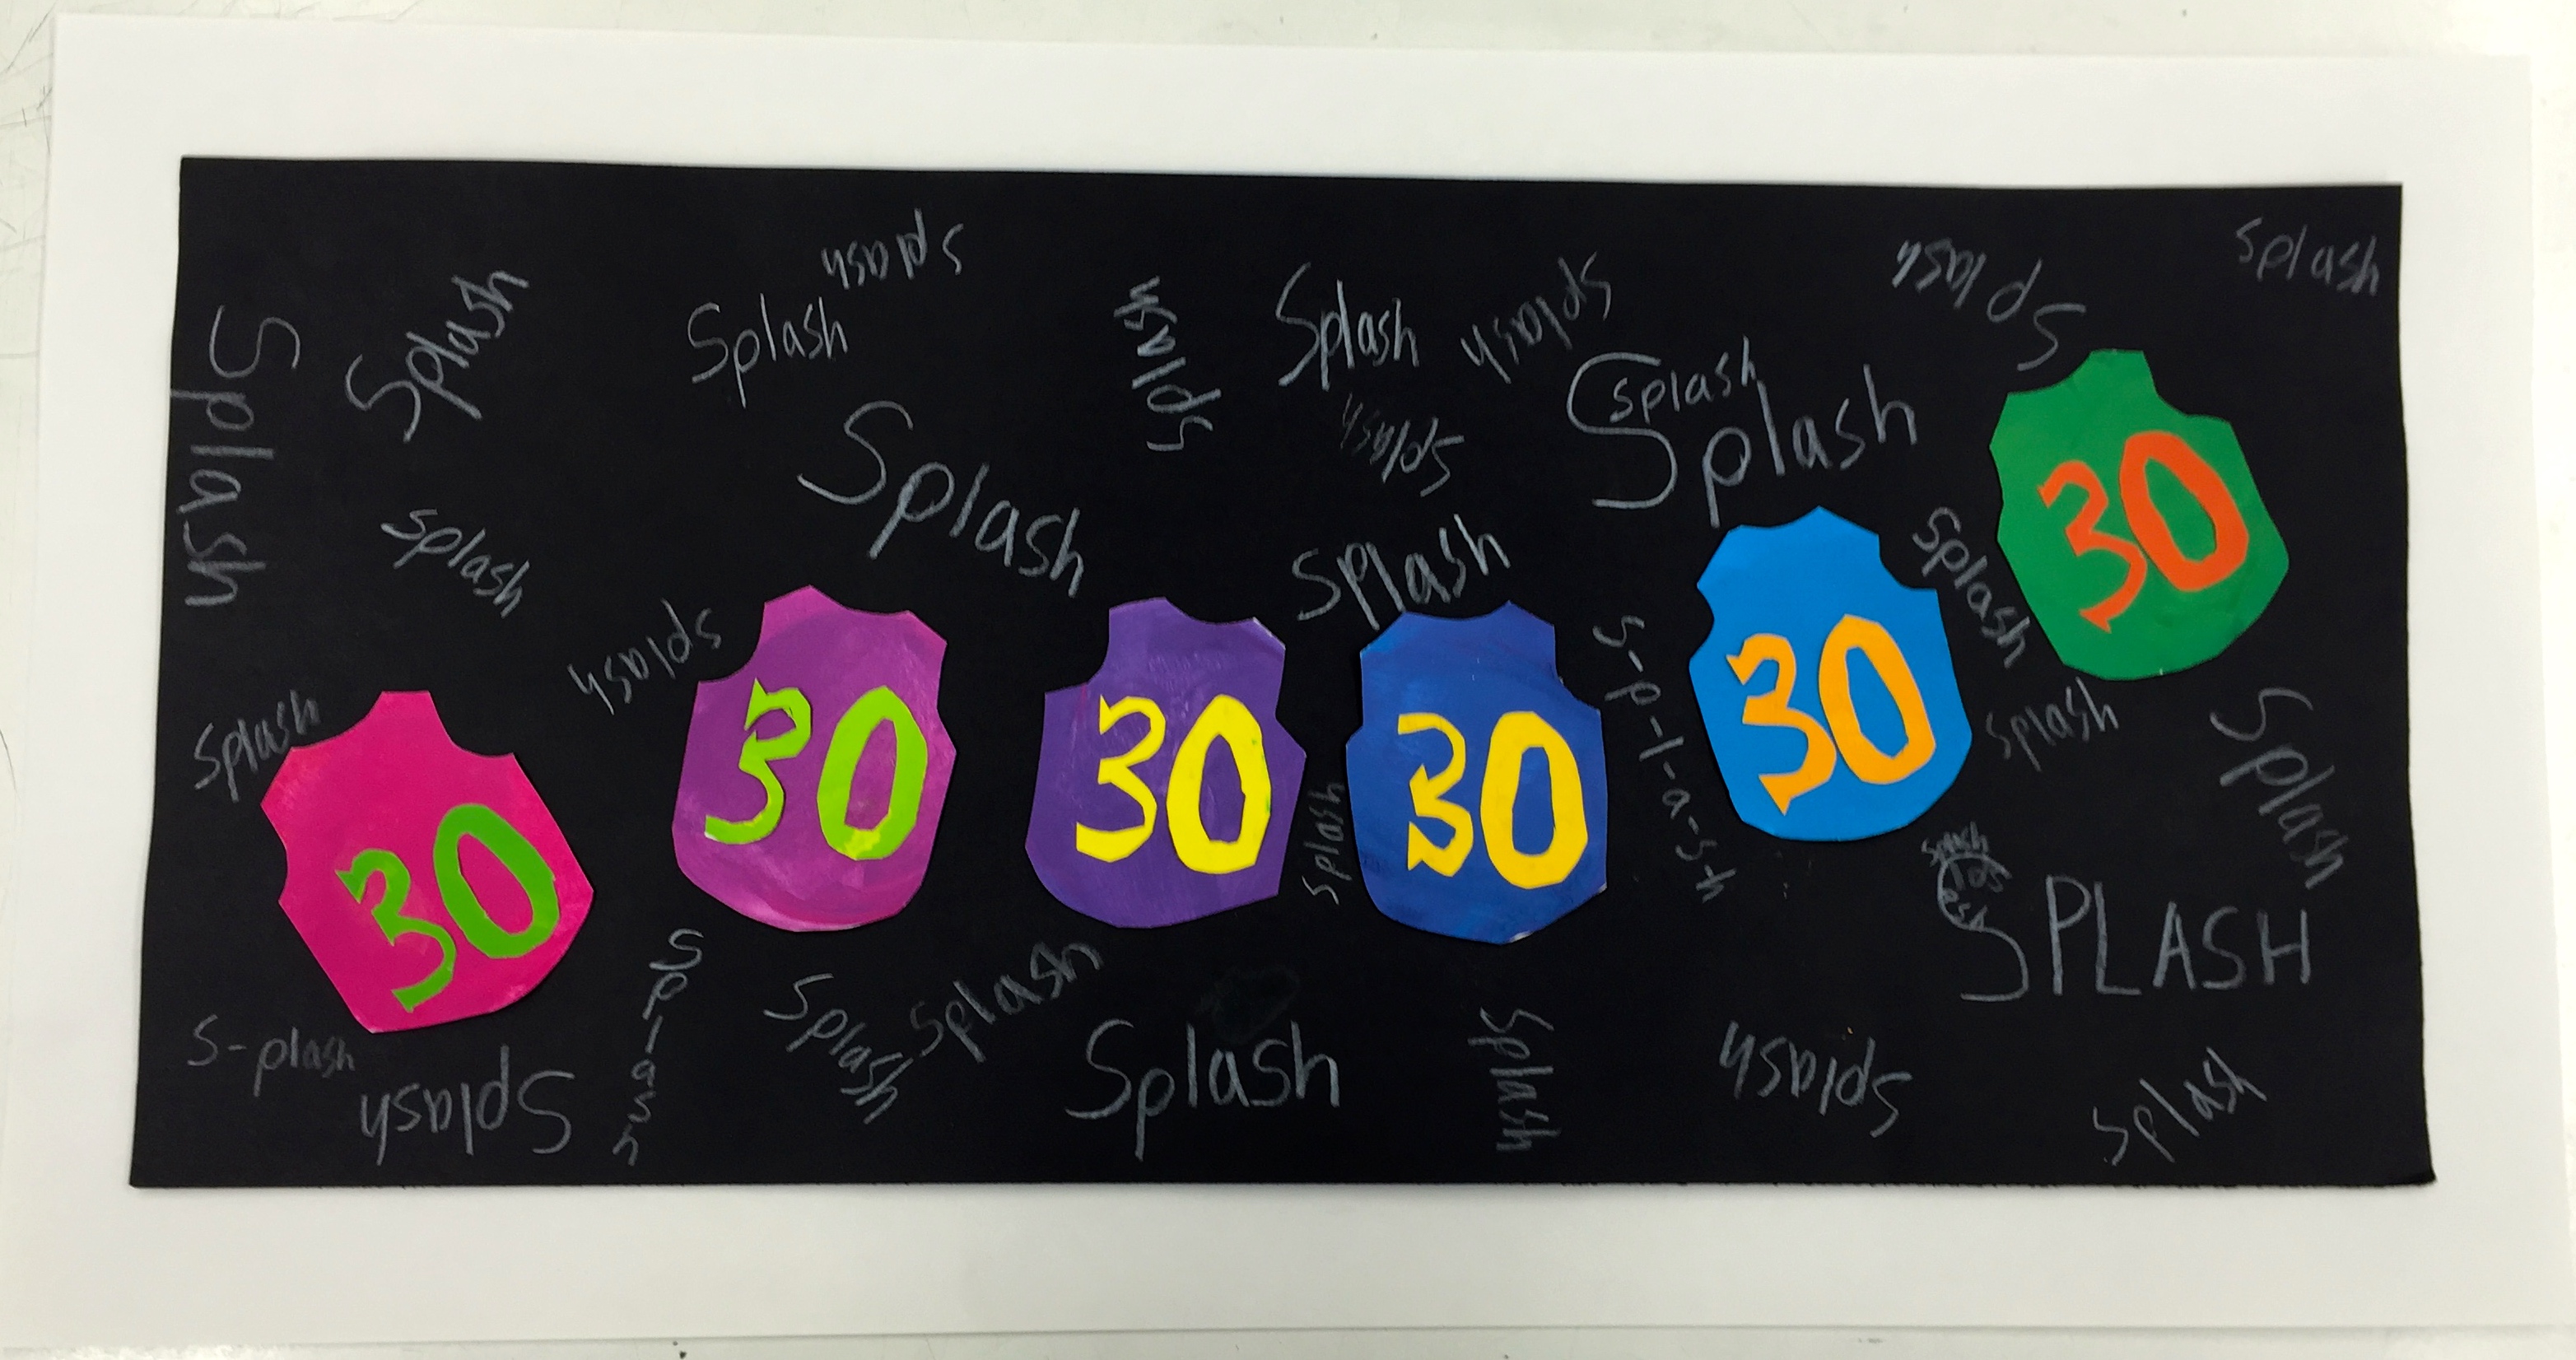 Splash
Splash
Splash
Splash
Splash
Splash
Splash
Splash
Splash
Splash
Splash
splash
Splash
Splash
Splash
Splash
Splash
Splash
Splash
Splash
S-p-l-a-s-h
Splash
Splash
Splash
30
30
30
30
30
30
Splash
Splash
SPLASH
S-plash
Splash
Splash
Splash
Splash
Splash
Splash
Splash
Splash